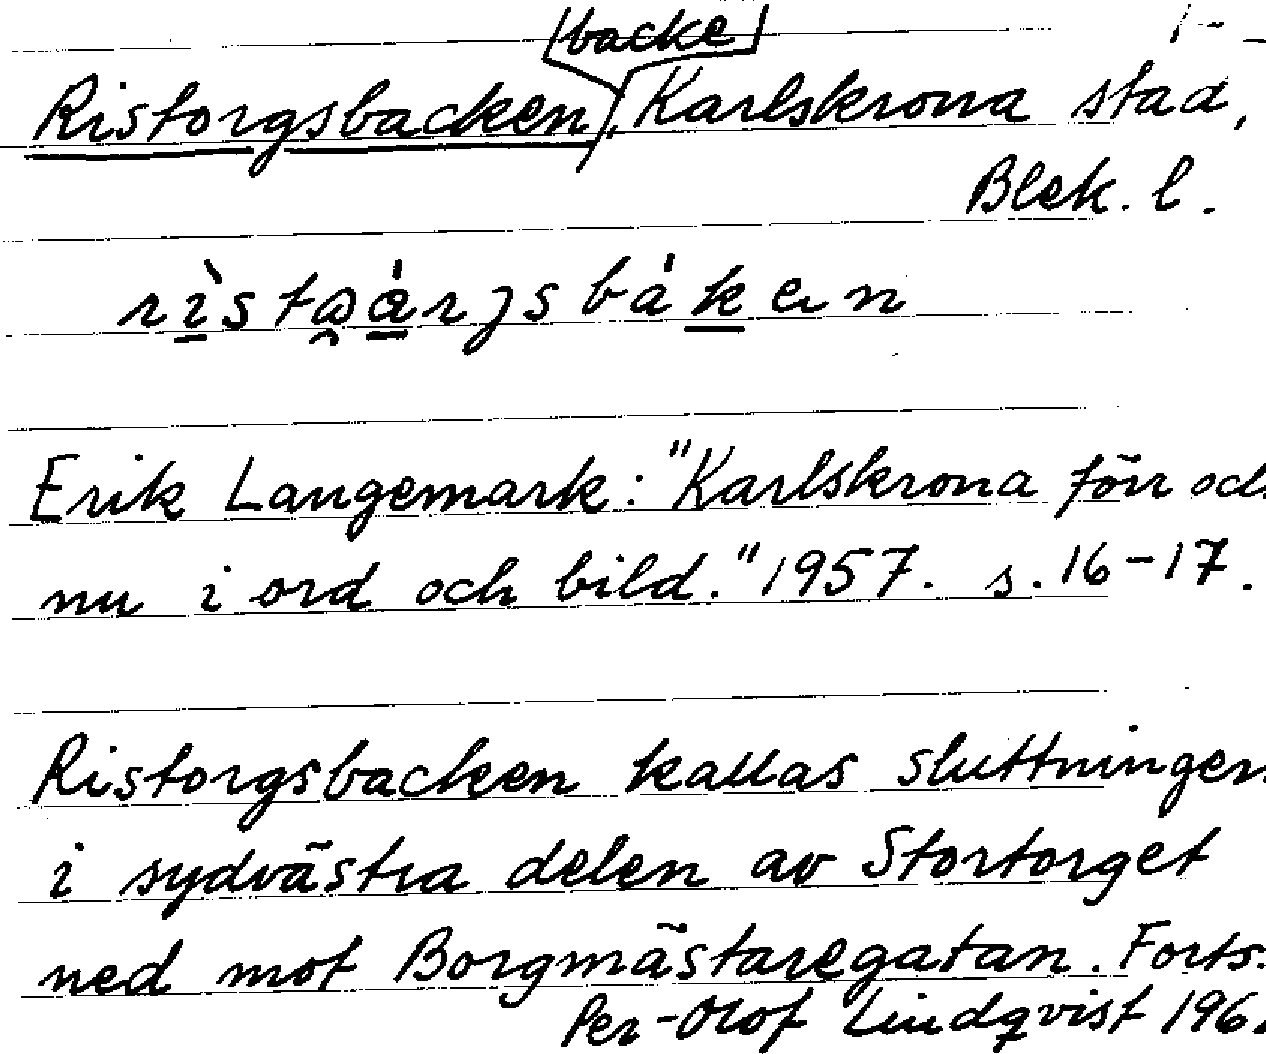 backe
Ristorgsbacken, Karlskrona stad,
Blek. l.
Erik Langemark: "Karlskrona förr och
nu i ord och bild." 1957. s. 16-17.
Ristorgsbacken kallas sluttningen
i sydvästra delen av Stortorget
ned mot Borgmästaregatan. Forts.
Per-Olof Lindqvist 196